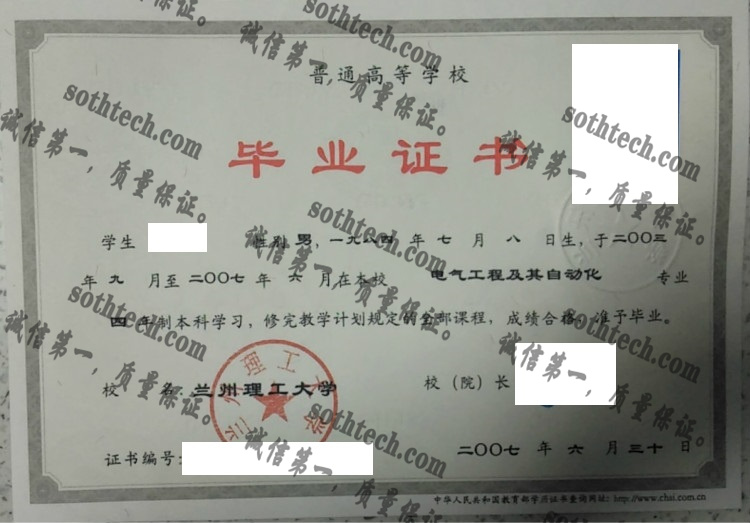 普通高等学校
毕业证书
学生 性别 男，一九八四 年 七 月 八 日生，于二〇〇三
年 九 月至 二〇〇七 年 六 月在本校 电气工程及其自动化 专业
四 年制本科学习，修完教学计划规定的全部课程，成绩合格，准予毕业。
校 名 兰州理工大学 校（院）长
兰州理工大学
证书编号： 二〇〇七 年 六 月 三十 日
中华人民共和国教育部学历证书查询网址：http://www.chsi.com.cn
sothtech.com
诚信第一，质量保证。
sothtech.com
诚信第一，质量保证。
sothtech.com
诚信第一，质量保证。
sothtech.com
诚信第一，质量保证。
sothtech.com
诚信第一，质量保证。
sothtech.com
诚信第一，质量保证。
sothtech.com
诚信第一，质量保证。
sothtech.com
诚信第一，质量保证。